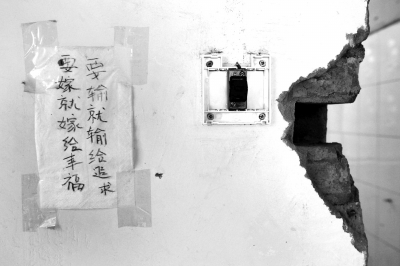 要输就输给追求
要嫁就嫁给幸福